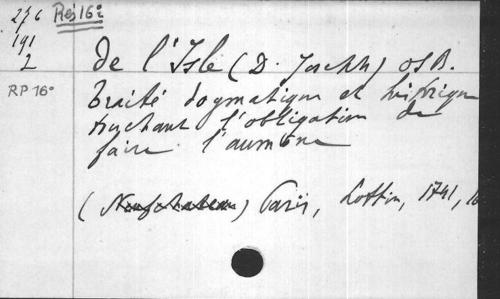 276 Rés 16°
191
2
RP 16°
de l'Isle (D. Joseph) OSB.
Traité dogmatique et historique
touchant l'obligation de
faire l'aumône
(Neufchateau) Paris, Lottin, 1741, 16